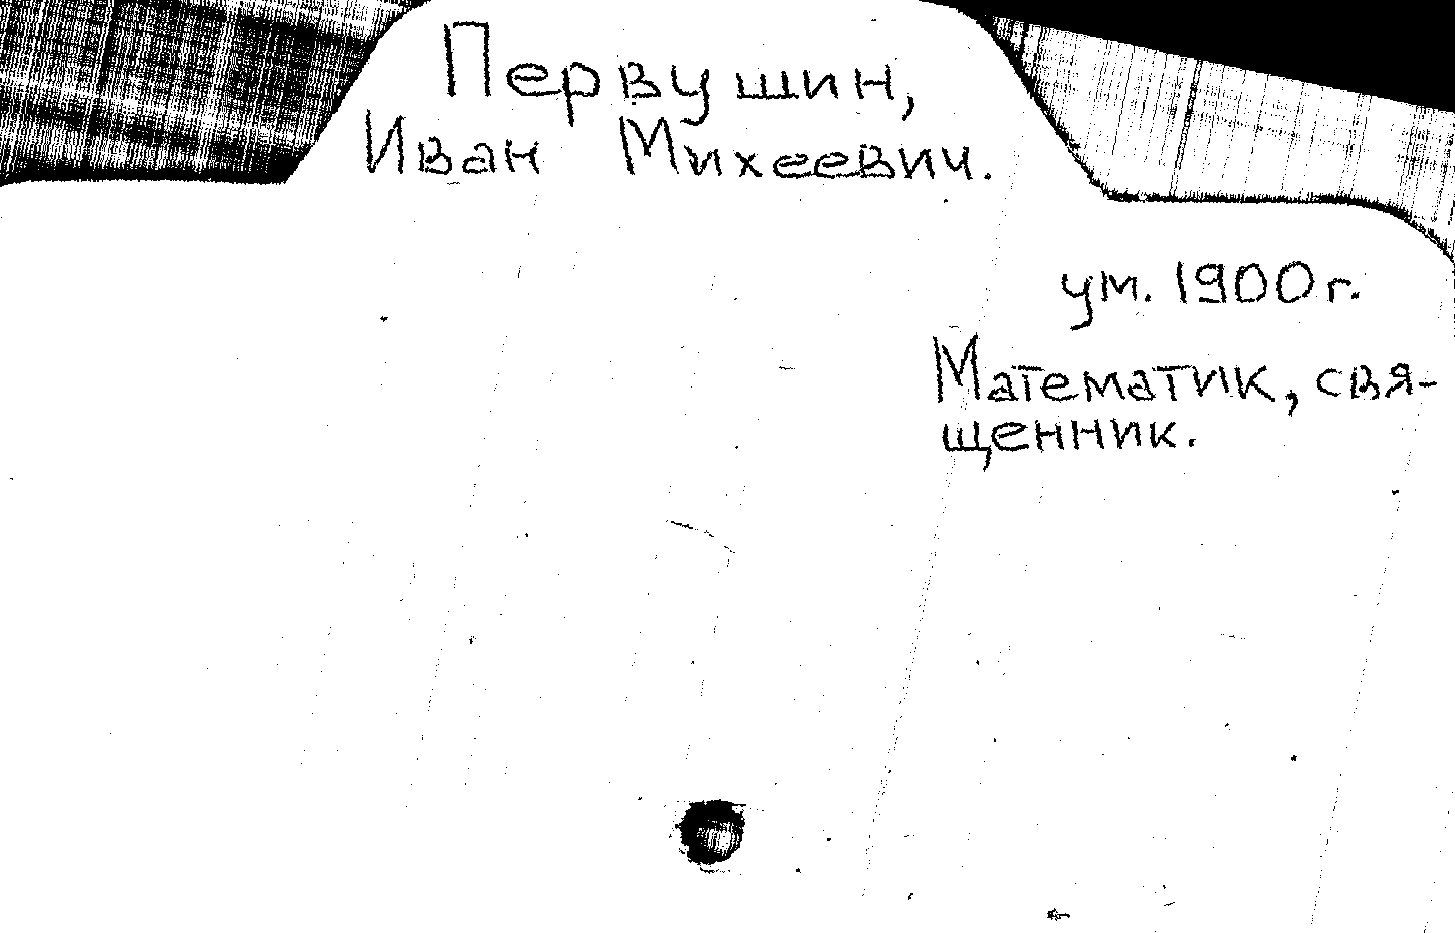 Первушин,
Иван Михеевич.
ум. 1900 г.
Математик, свя-
щенник.